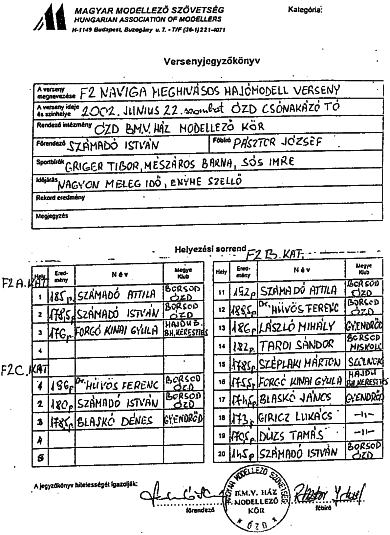 MAGYAR MODELLEZŐ SZÖVETSÉG
HUNGARIAN ASSOCIATION OF MODELLERS
H-1149 Budapest, Buzogány u. 7. - T/F (36-1) 221-4071
Kategória:
Versenyjegyzőkönyv
A verseny megnevezése F2 NAVIGA MEGHIVÁSOS HAJÓMODELL VERSENY
A verseny ideje és színhelye 2002. JUNIUS 22. szombat ÓZD CSÓNAKÁZÓ TÓ
Rendező intézmény ÓZD B.M.V. HÁZ MODELLEZŐ KÖR
Főrendező SZÁMADÓ ISTVÁN Főbíró PÁSZTOR JÓZSEF
Sportbírók GRIGER TIBOR, MÉSZÁROS BARNA, SÓS IMRE
Időjárás NAGYON MELEG IDŐ, ENYHE SZELLŐ
Rekord eredmény
Megjegyzés
Helyezési sorrend
F2A. KAT.
F2B. KAT.
Hely. Eredmény Név Megye Klub
1 185p. SZÁMADÓ ATTILA BORSOD ÓZD
2 SZÁMADÓ ISTVÁN BORSOD ÓZD
3 FORGÓ KINAI GYULA HAJDU B. BH. KERESTES
4
F2C. KAT
1 196p Dr. HÜVÖS FERENC BORSOD ÓZD
2 180p SZÁMADÓ ISTVÁN BORSOD ÓZD
3 BLASKÓ DÉNES GYENDRŐD
4
5
Hely. Eredmény Név Megye Klub
11 192p SZÁMADÓ ATTILA BORSOD ÓZD
12 Dr. HÜVÖS FERENC BORSOD ÓZD
13 186p LÁSZLÓ MIHÁLY GYENDRŐD
14 182p TARDI SÁNDOR BORSOD MISKOLC
15 SZÉPLAKI MÁRTON SZOLNOK
16 FORGÓ KINAI GYULA HAJDU BH. KERESTES
17 BLASKÓ JÁNOS GYENDRŐD
18 GIRICZ LUKÁCS -11-
19 DÚZS TAMÁS -11-
20 SZÁMADÓ ISTVÁN BORSOD ÓZD
A jegyzőkönyv hitelességét igazolják:
főrendező
főbíró
MAGYAR MODELLEZŐ SZÖVETSÉG
B.M.V. HÁZ
MODELLEZŐ
KÖR
ÓZD